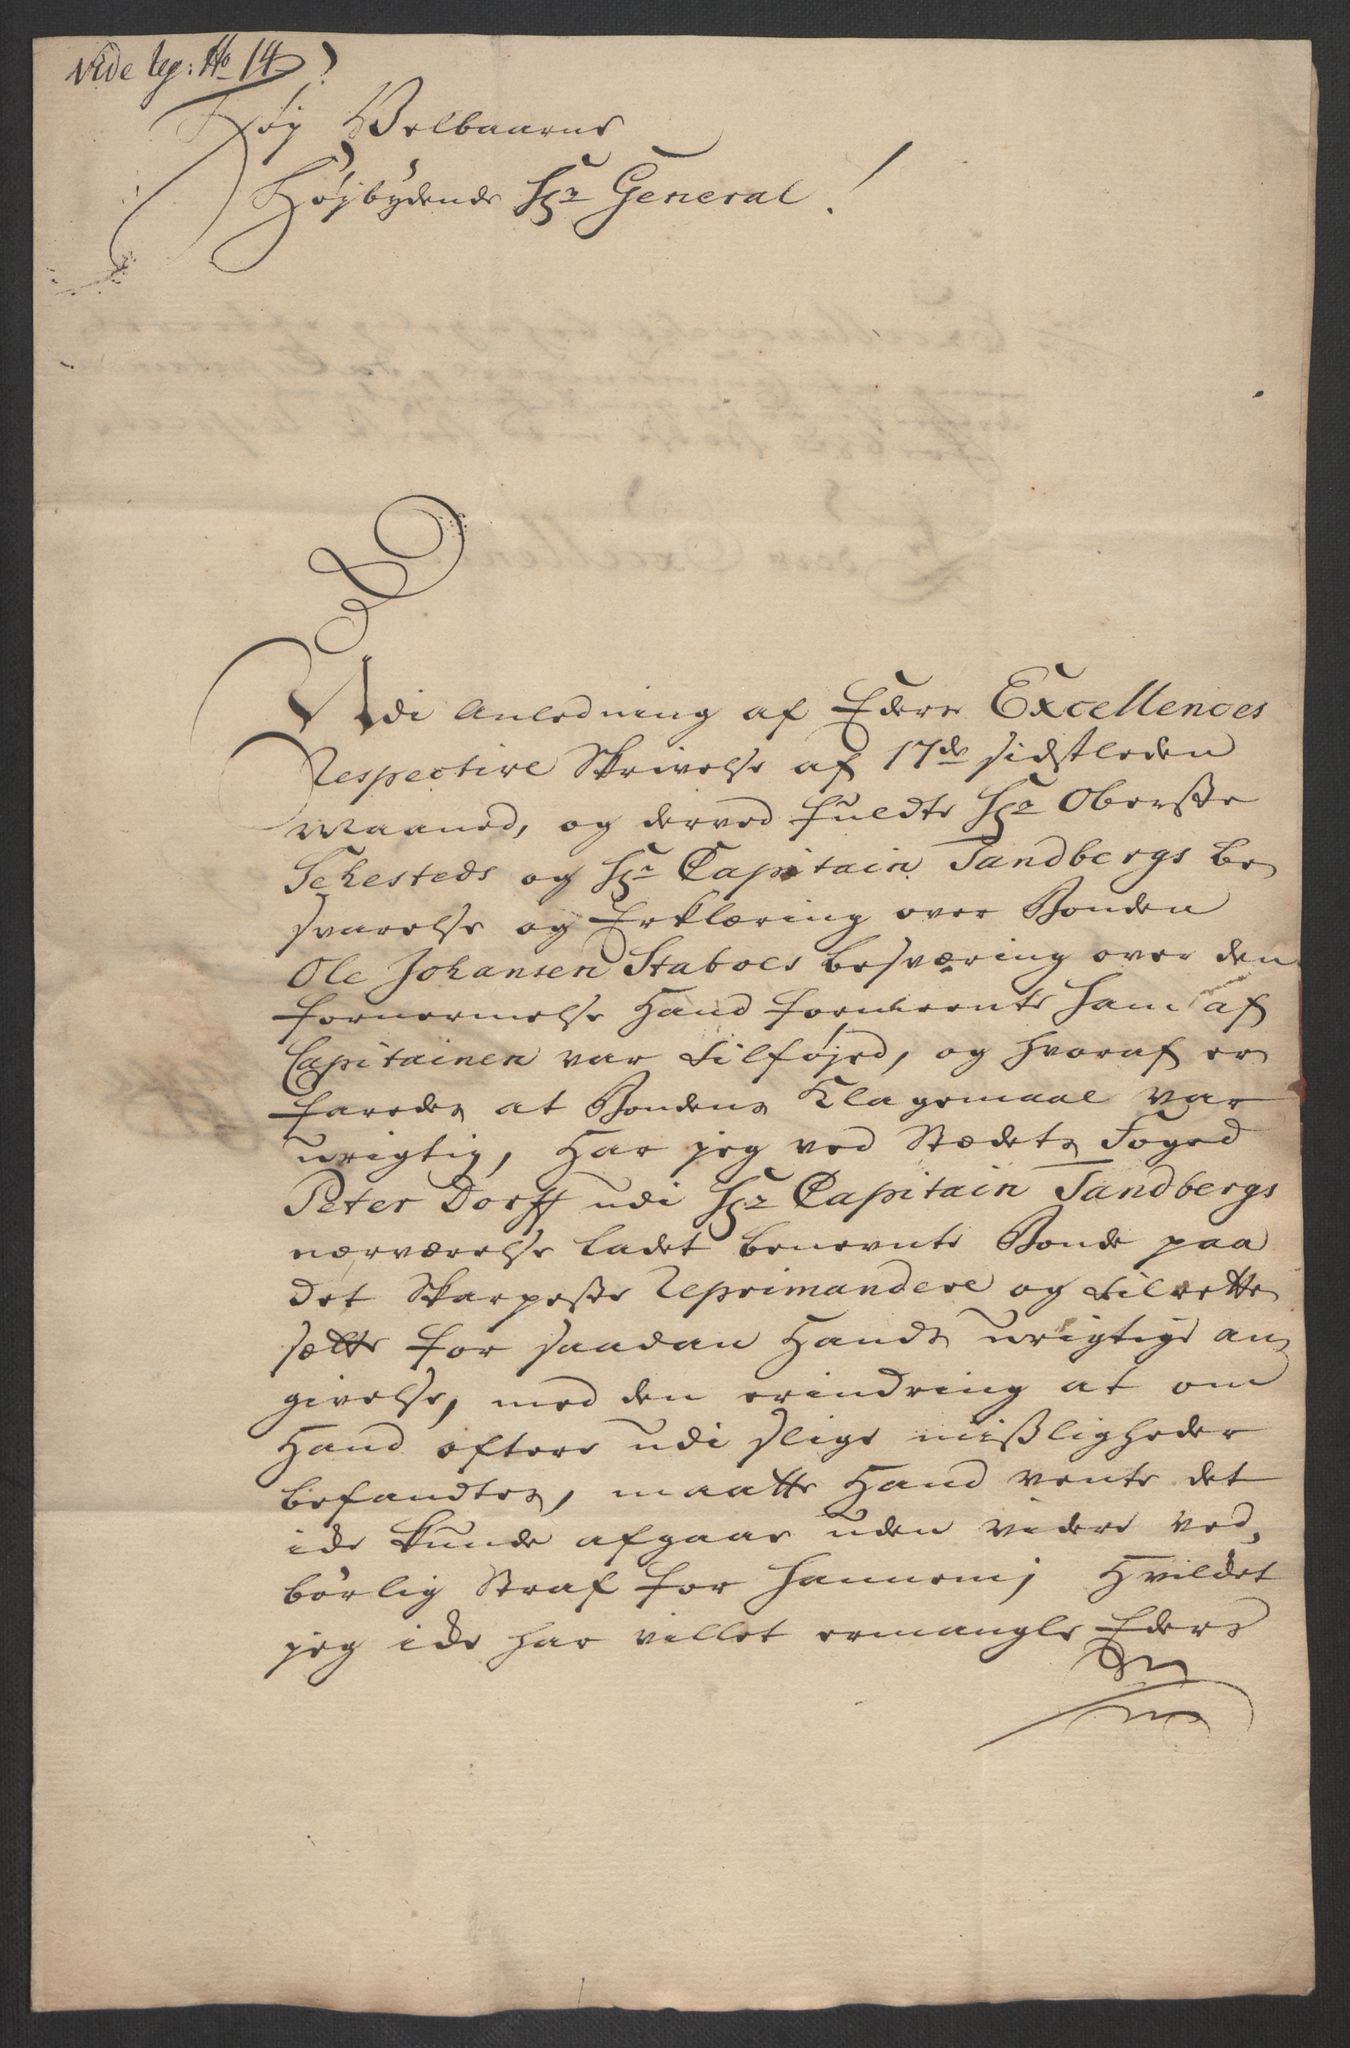 Vide leg: No 14
Høy Velbaarne
Høybydende Hr General!
Udi Anledning af Eders Excellences
Respective Skrivelse af 17de sidstleden
Maaned, og derved fuldte Hr Oberste
Sehesteds og Hr Capitain Tandbergs be
svarelse og Erklæring over Bonden
Ole Johansen Staboes besværing over den
fornermelse Hand formeente ham af
Capitainen var tilføjed, og hvoraf er
faredes at Bondens Klagemaal var
urigtig, Har jeg ved Stædets Foged
Peter Dorff udi Hr Capitain Tandbergs
nærværelse ladet benevnte Bonde paa
det Skarpeste Reprimandere og tilrette
sætte for saadan Hands urigtige an
givelse, med den erindring at om
Hand oftere udi slige mißligheder
befandtes, maatte Hand vente det
icke kunde afgaae uden videre ved
børlig Straf for hannem; Hvildet
jeg icke har villet ermangle Eders